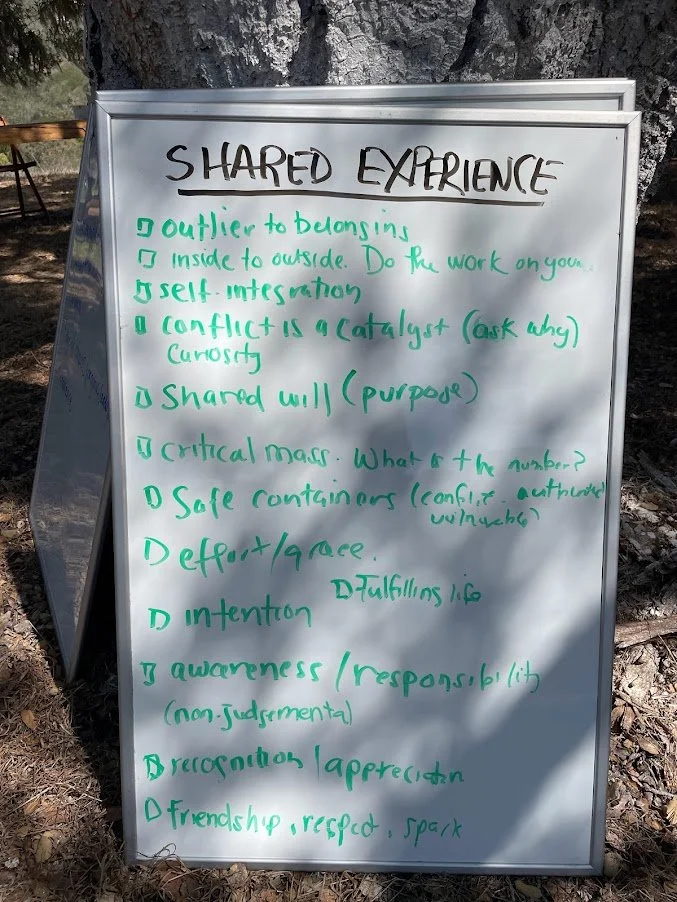 SHARED EXPERIENCE
outlier to belonging
inside to outside. Do the work on you
self-integration
conflict is a catalyst (ask why)
curiosity
Shared will (purpose)
critical mass. What is the number?
Safe containers (conflict
effort/grace.
Fulfilling life
intention
awareness/responsibility
(non-judgemental)
recognition/appreciation
friendship, respect, spark